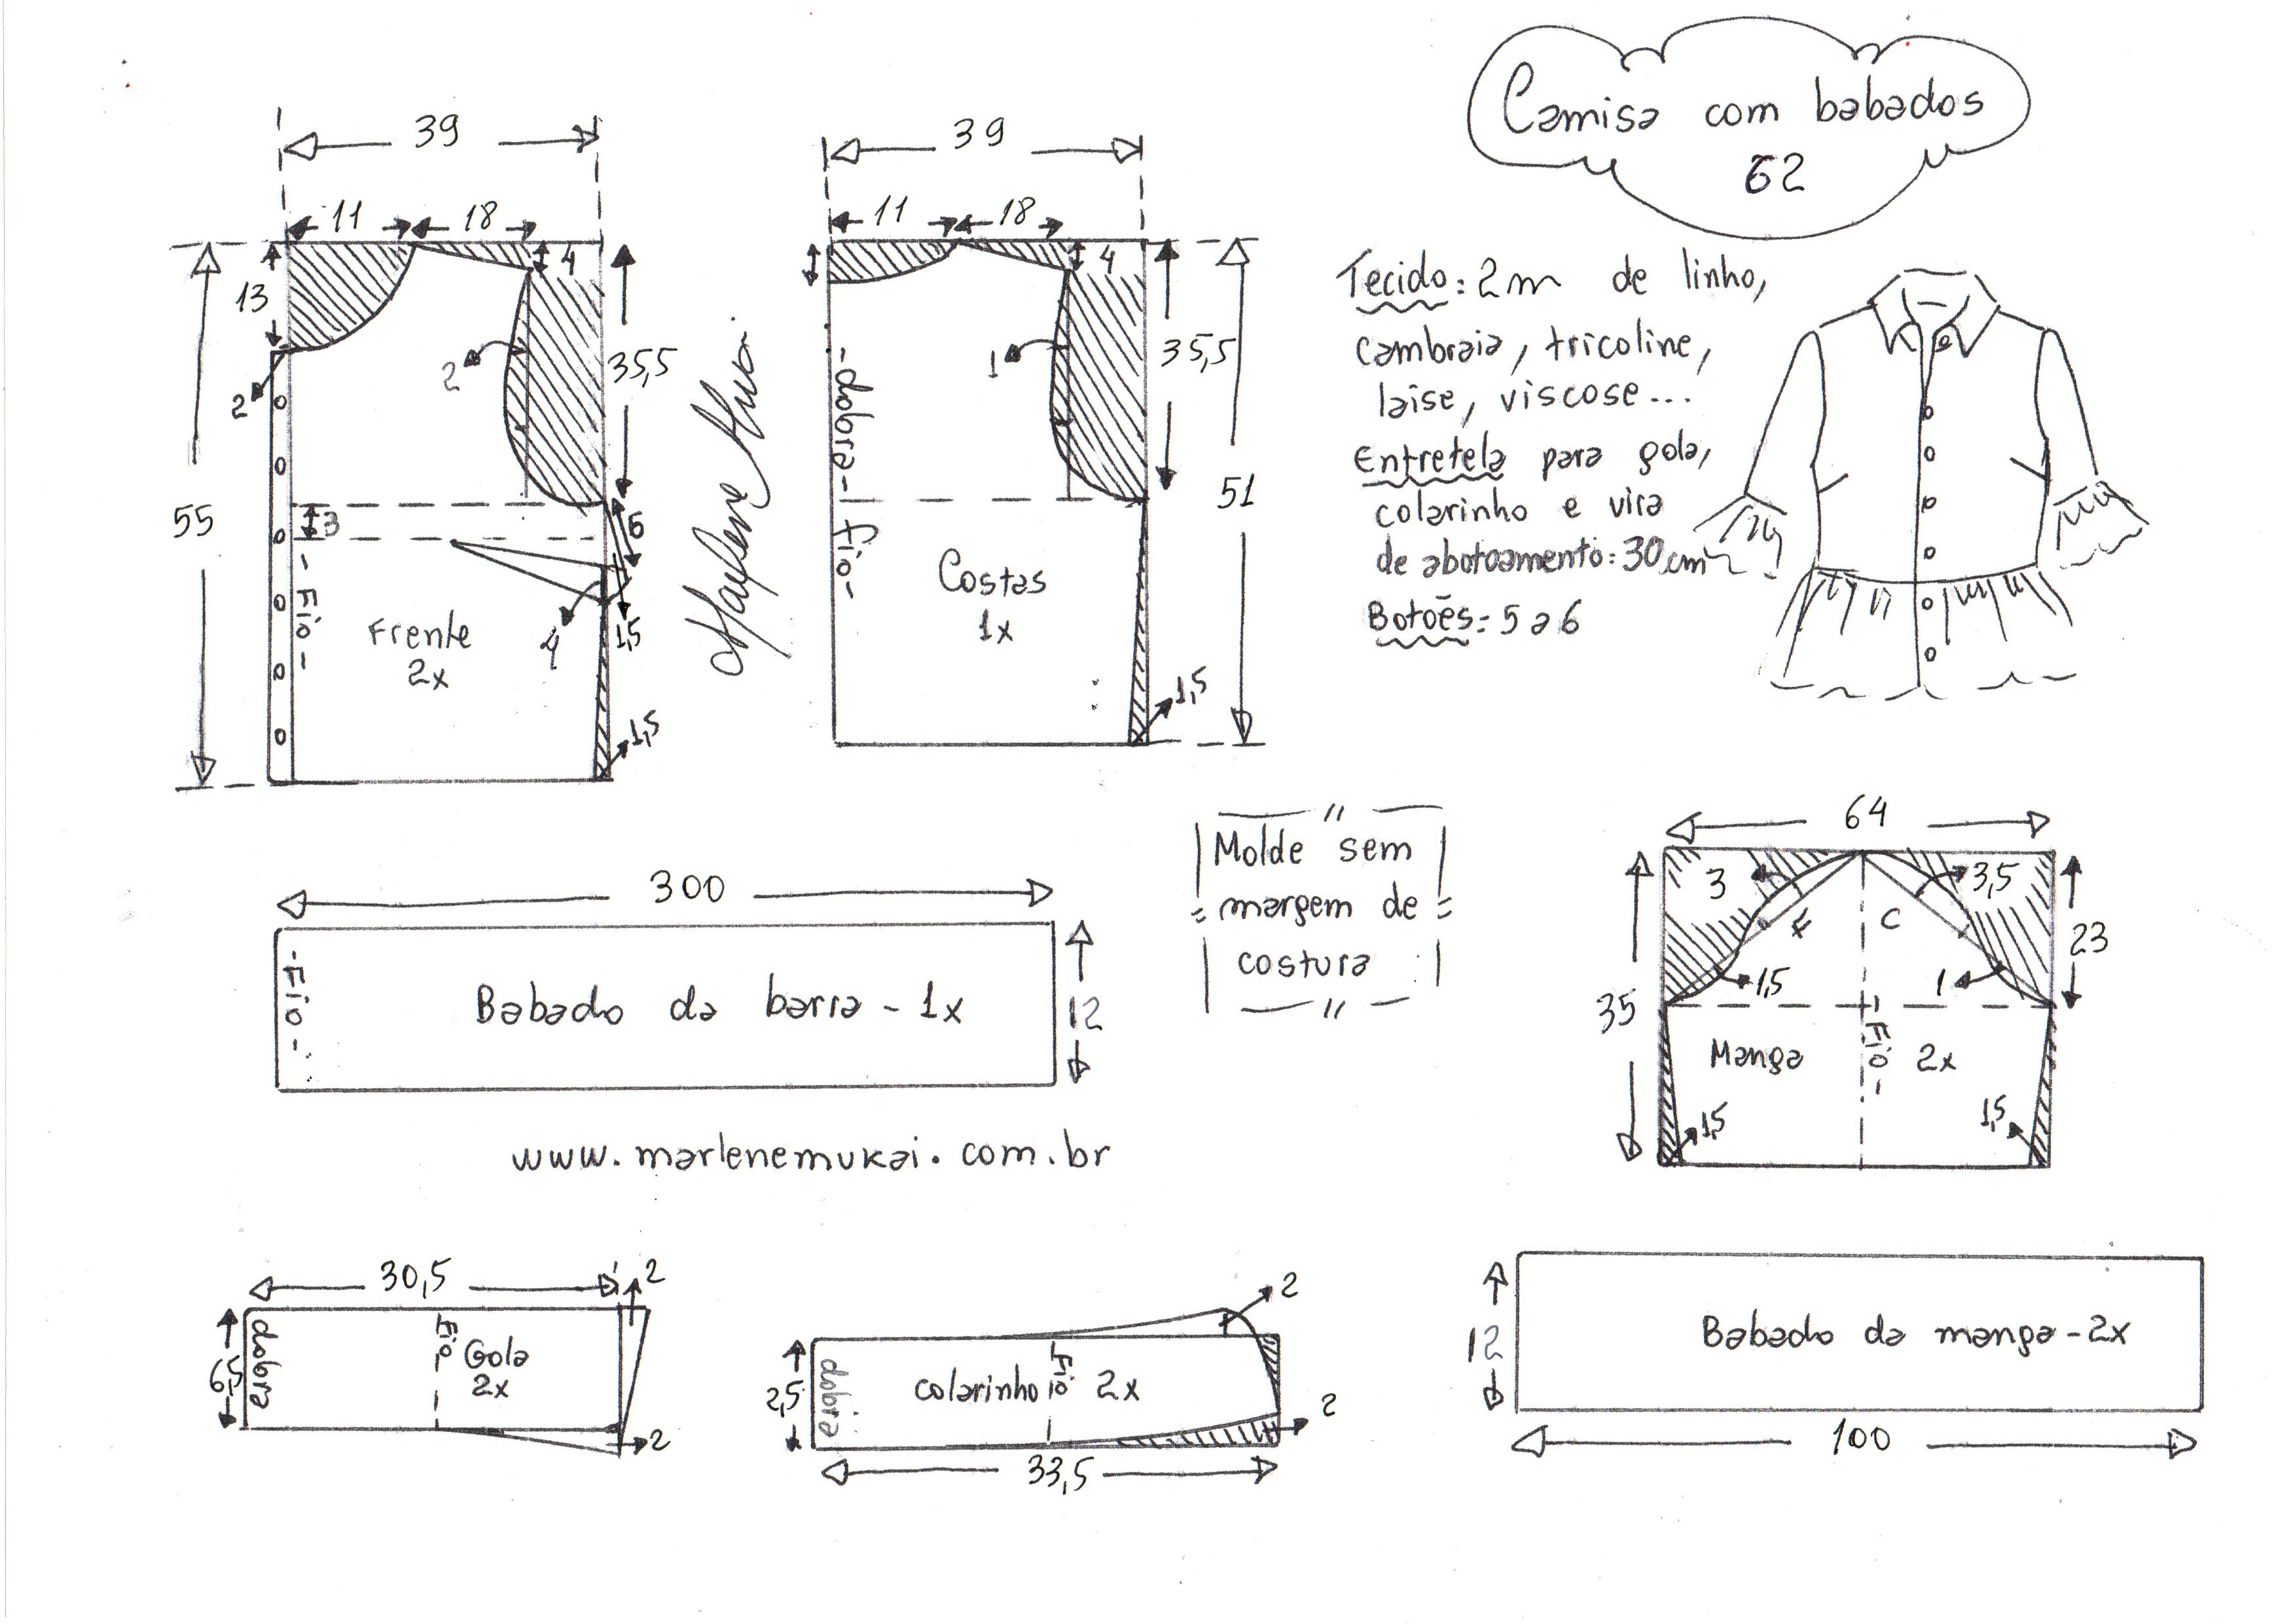 Camisa com babados
62
39
11
18
4
13
2
2
35,5
55
3
6
4
1,5
1,5
-Fio-
Frente
2x
Marlene Mukai
39
11
18
4
1
35,5
51
-dobra-
Fio-
Costas
1x
1,5
Tecido: 2m de linho,
cambraia, tricoline,
laise, viscose...
Entretela para gola,
colarinho e vira
de abotoamento: 30 cm
Botões: 5 a 6
300
-Fio-
Babado da barra - 1x
12
Molde sem
margem de
costura
64
3
3,5
F
C
23
1,5
1
35
Manga
-Fio-
2x
1,5
1,5
www.marlenemukai.com.br
30,5
2
6,5
dobra
Fio
Gola
2x
2
2
2,5
dobra
colarinho
Fio
2x
2
33,5
12
Babado da manga - 2x
100